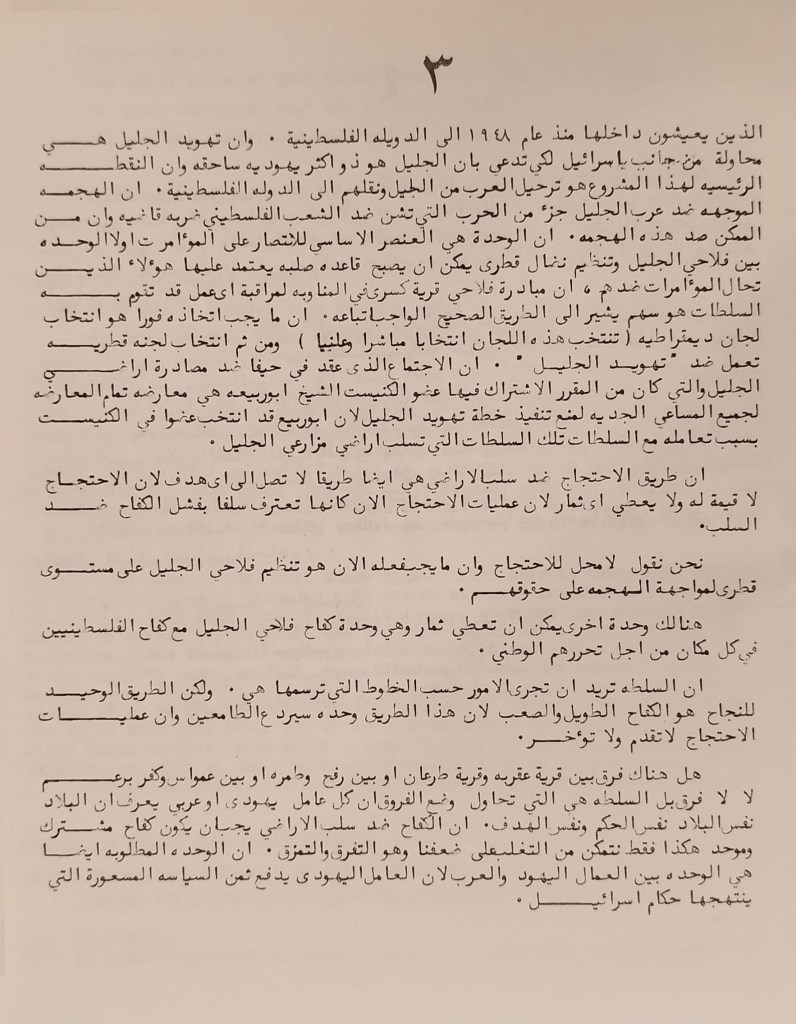 ٣
الذين يعيشون داخلها منذ عام ١٩٤٨ الى الدويله الفلسطينية ٠ وان تهويد الجليل هـــي
محاولة من جانب إسرائيل لكي تدعي بان الجليل هو ذو اكثريه يهوديه ساحقه وان النقطــه
الرئيسيه لهذا المشروع هو ترحيل العرب من الجليل ونقلهم الى الدوله الفلسطينية ٠ ان الهجمه
الموجهه ضد عرب الجليل جزء من الحرب التي تشن ضد الشعب الفلسطيني ضربه قاضيه وان مــن
الممكن صد هذه الهجمه ٠ ان الوحدة هي العنصر الاساسي للانتصار على المؤامرت اولا الوحده
بين فلاحي الجليل وتنظيم نضال قطرى يمكن ان يصبح قاعده صلبه يعتمد عليها هؤلاء الذيــن
تحال المؤامرات ضدهم ، ان مبادرة فلاحي قرية كسرى في المناوبه لمراقبة اى عمل قد تقوم بــه
السلطات هو سهم يشير الى الطريق الصحيح الواجب اتباعه ٠ ان ما يجب اتخاذه فورا هو انتخاب
لجان ديمقراطيه ( تنتخب هذه اللجان انتخابا مباشرا وعلنيا ) ومن ثم انتخاب لجنه قطريــه
تعمل ضد " تهويد الجليــل " ٠ ان الاجتماع الذى عقد في حيفا ضد مصادرة اراضــي
الجليل والتي كان من المقرر الاشتراك فيها عضو الكنيست الشيخ ابو ربيعه هي معارضه تمام المعارضه
لجميع المساعي الجديه لمنع تنفيذ خطة تهويد الجليل لان ابو ربيع قد انتخب عضوا في الكنيســت
بسبب تعامله مع السلطات تلك السلطات التي تسلب اراضي مزارعي الجليل ٠
ان طريق الاحتجاج ضد سلب الاراضي هي ايضا طريقا لا تصل الى اى هدف لان الاحتجــاج
لا قيمة له ولا يعطي اى ثمار لان عمليات الاحتجاج الان كانها تعترف سلفا بفشل الكفاح ضــد
السلب ٠
نحن نقول لا محل للاحتجاج وان ما يجب فعله الان هو تنظيم فلاحي الجليل على مستــوى
قطرى لمواجهة الهجمه على حقوقهــم ٠
هنالك وحدة اخرى يمكن ان تعطي ثمار وهي وحدة كفاح فلاحي الجليل مع كفاح الفلسطينيين
في كل مكان من اجل تحررهم الوطني ٠
ان السلطه تريد ان تجرى الامور حسب الخاوط التي ترسمها هي ٠ ولكن الطريق الوحيــد
للنجاح هو الكفاح الطويل والصعب لان هذا الطريق وحده سيردع الطامعين وان عمليــات
الاحتجاج لا تقدم ولا تؤخــر ٠
هل هناك فرق بين قرية عقربه وقرية طرعان او بين رفح وطمره او بين عمواس وكفر برعــم
لا لا فرق بل السلطه هي التي تحاول وضع الفروق ان كل عامل يهودى او عربي يعرف ان البلاد
نفس البلاد نفس الحكم ونفس الهدف ٠ ان الكفاح ضد سلب الاراضي يجب ان يكون كفاح مشتــرك
وموحد هكذا فقط نتمكن من التغلب على ضعفنا وهو التفرق والتمزق ٠ ان الوحده المطلوبه ايضــا
هي الوحده بين العمال اليهود والعرب لان العامل اليهودى يدفع ثمن السياسه المسعورة التي
ينتهجها حكام اسرائيــل ٠